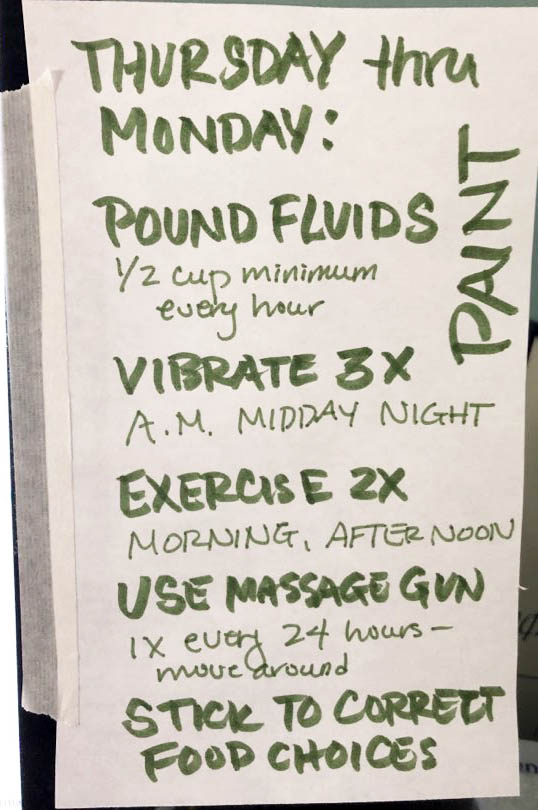 THURSDAY thru
MONDAY:
PAINT
POUND FLUIDS
1/2 cup minimum
every hour
VIBRATE 3X
A.M. MIDDAY NIGHT
EXERCISE 2X
MORNING, AFTERNOON
USE MASSAGE GUN
1X every 24 hours-
move around
STICK TO CORRECT
FOOD CHOICES